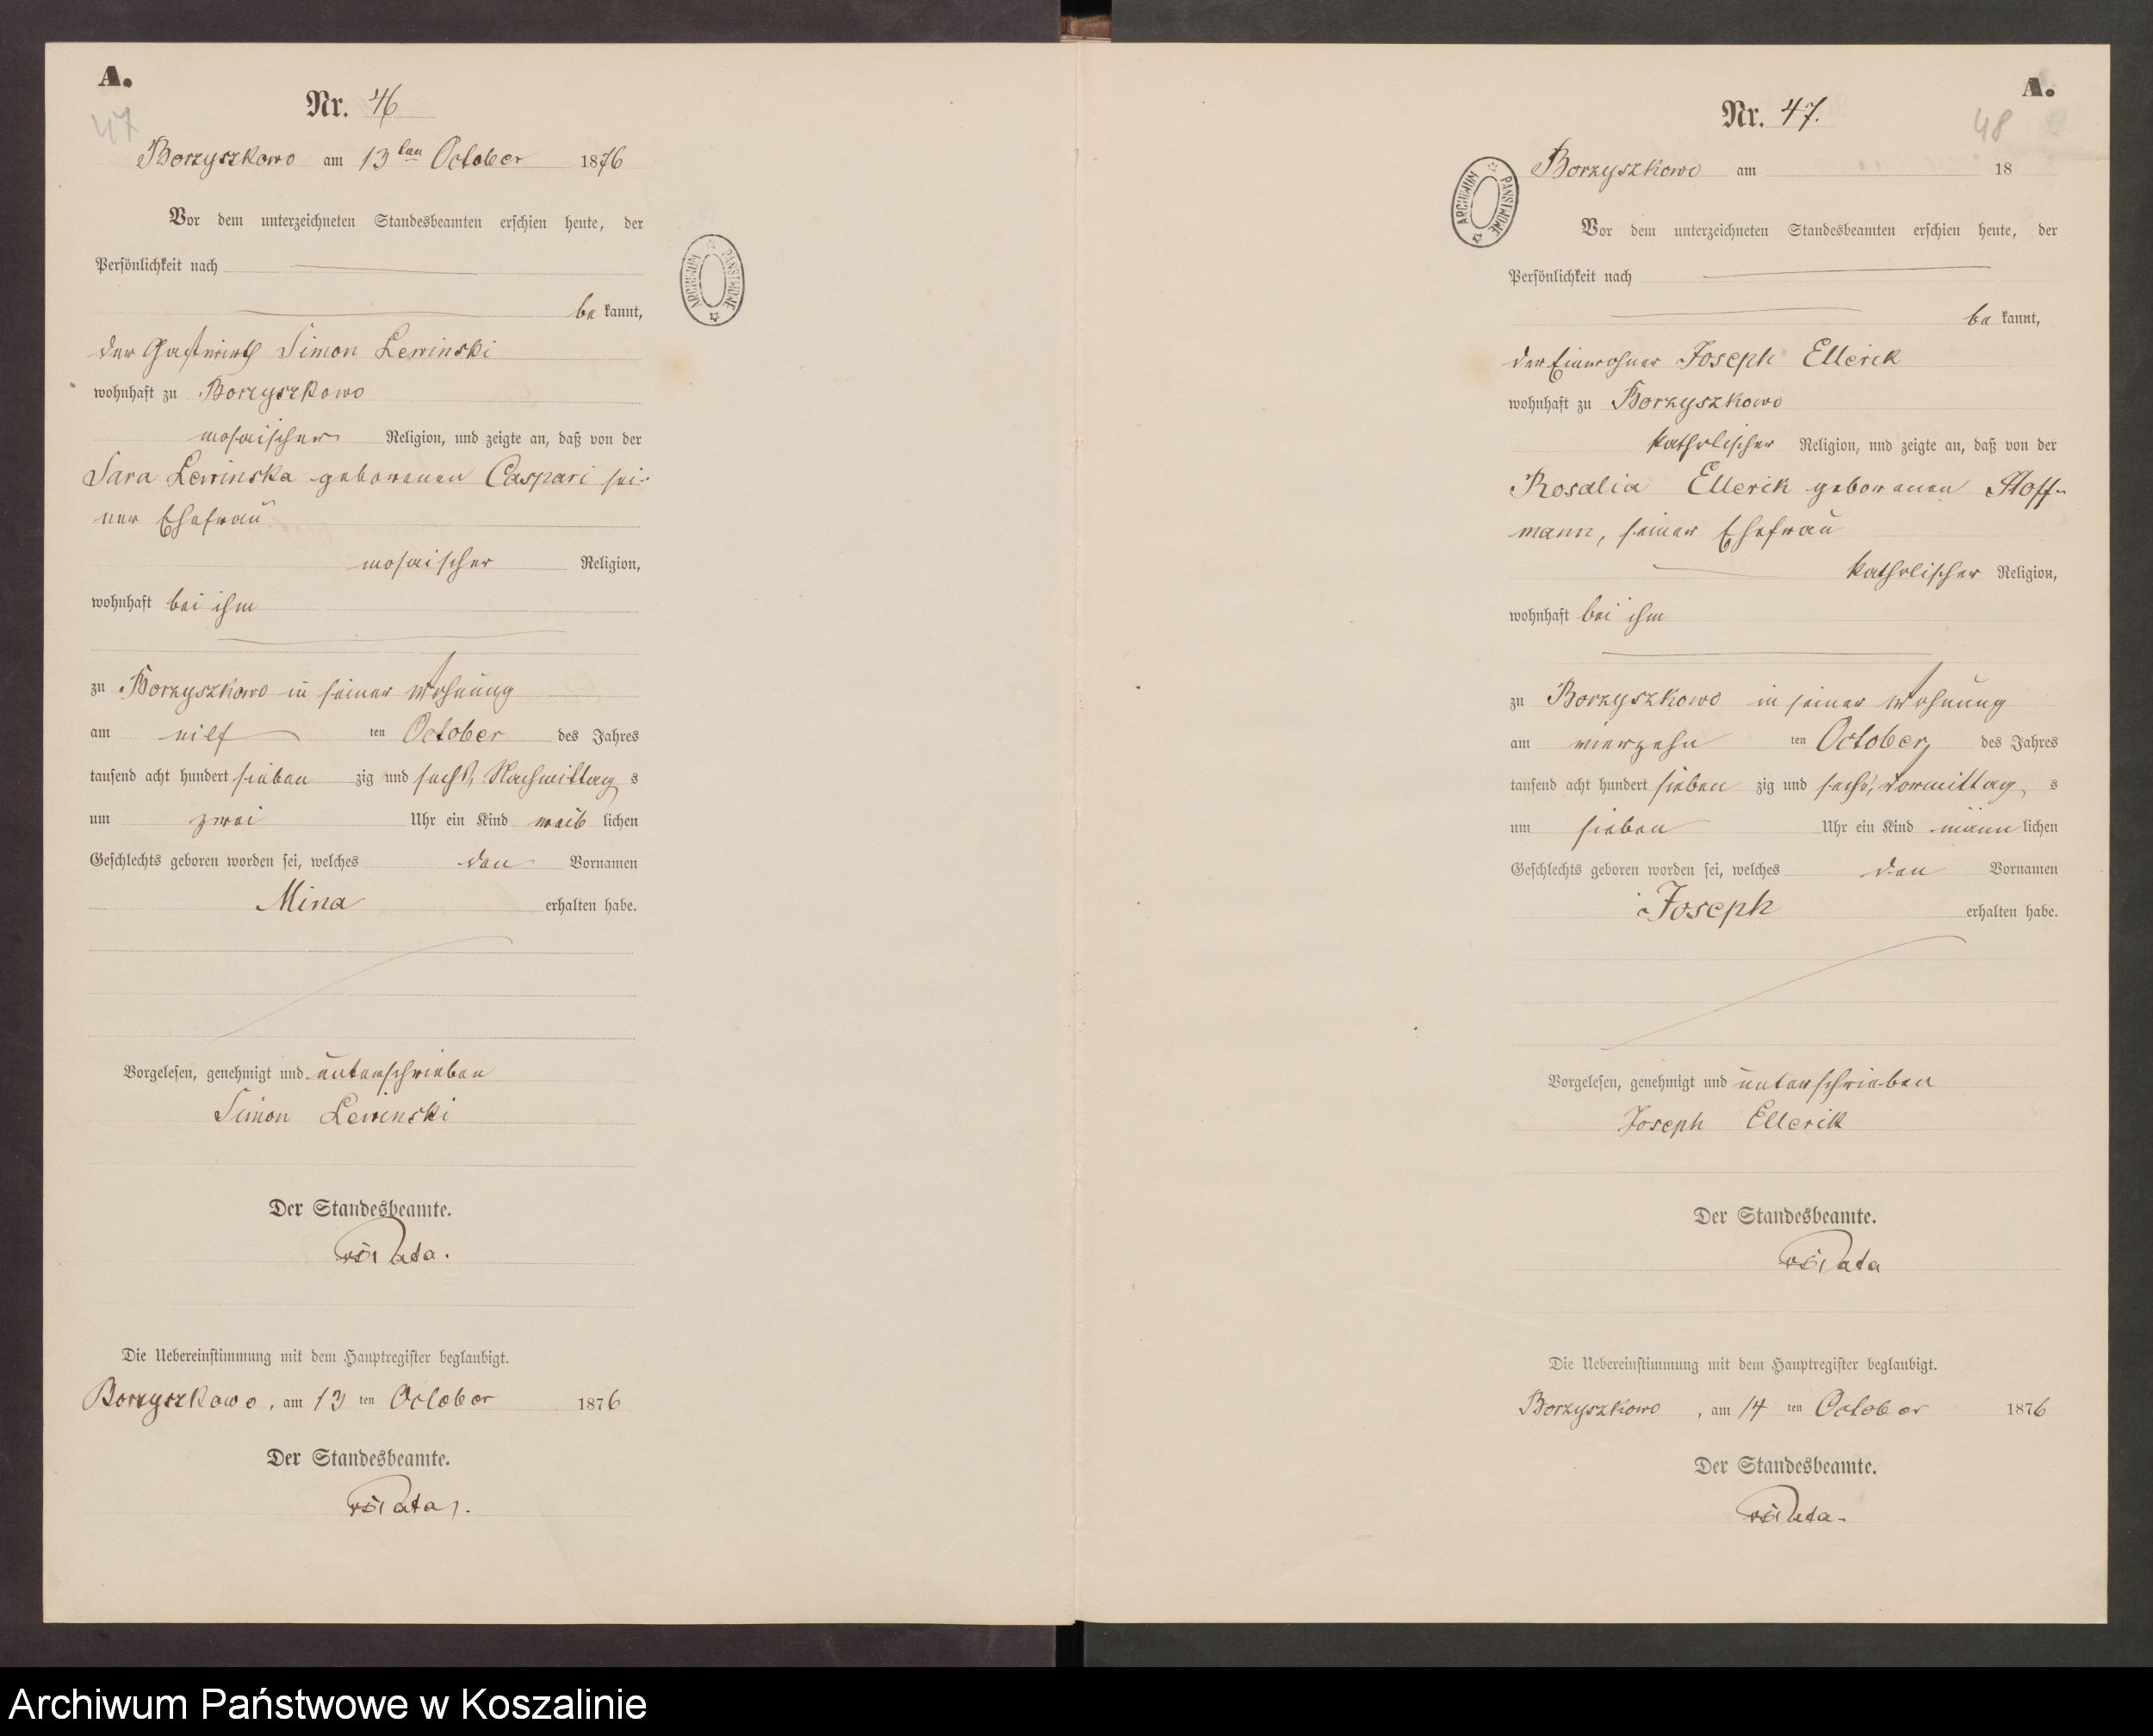 A.
47
Nr. 46
Borzyszkowo am 13ten October 1876
Vor dem unterzeichneten Standesbeamten erschien heute, der
Persönlichkeit nach
be kannt,
der Gastwirth Simon Lewinski
wohnhaft zu Borzyszkowo
mosaischer Religion, und zeigte an, daß von der
Sara Lewinska geborenen Caspari sei-
ner Ehefrau
mosaischer Religion,
wohnhaft bei ihm
zu Borzyszkowo in seiner Wohnung
am eilf ten October des Jahres
tausend acht hundert sieben zig und sechs, Nachmittag s
um zwei Uhr ein Kind weib lichen
Geschlechts geboren worden sei, welches den Vornamen
Mina erhalten habe.
Vorgelesen, genehmigt und unterschrieben
Simon Lewinski
Der Standesbeamte.
Die Uebereinstimmung mit dem Hauptregister beglaubigt.
Borzyszkowo, am 13 ten October 1876
Der Standesbeamte.
ARCHIWUM PAŃSTWOWE
A.
48
Nr. 47.
Borzyszkowo am 18
Vor dem unterzeichneten Standesbeamten erschien heute, der
Persönlichkeit nach
be kannt,
der Einwohner Joseph Ellerik
wohnhaft zu Borzyszkowo
katholischer Religion, und zeigte an, daß von der
Rosalia Ellerik geborenen Hoff-
mann, seiner Ehefrau
katholischer Religion,
wohnhaft bei ihm
zu Borzyszkowo in seiner Wohnung
am vierzehn ten October, des Jahres
tausend acht hundert sieben zig und sechs, Vormittag s
um sieben Uhr ein Kind männ lichen
Geschlechts geboren worden sei, welches den Vornamen
Joseph erhalten habe.
Vorgelesen, genehmigt und unterschrieben
Joseph Ellerik
Der Standesbeamte.
Die Uebereinstimmung mit dem Hauptregister beglaubigt.
Borzyszkowo, am 14 ten October 1876
Der Standesbeamte.
ARCHIWUM PAŃSTWOWE
Archiwum Państwowe w Koszalinie